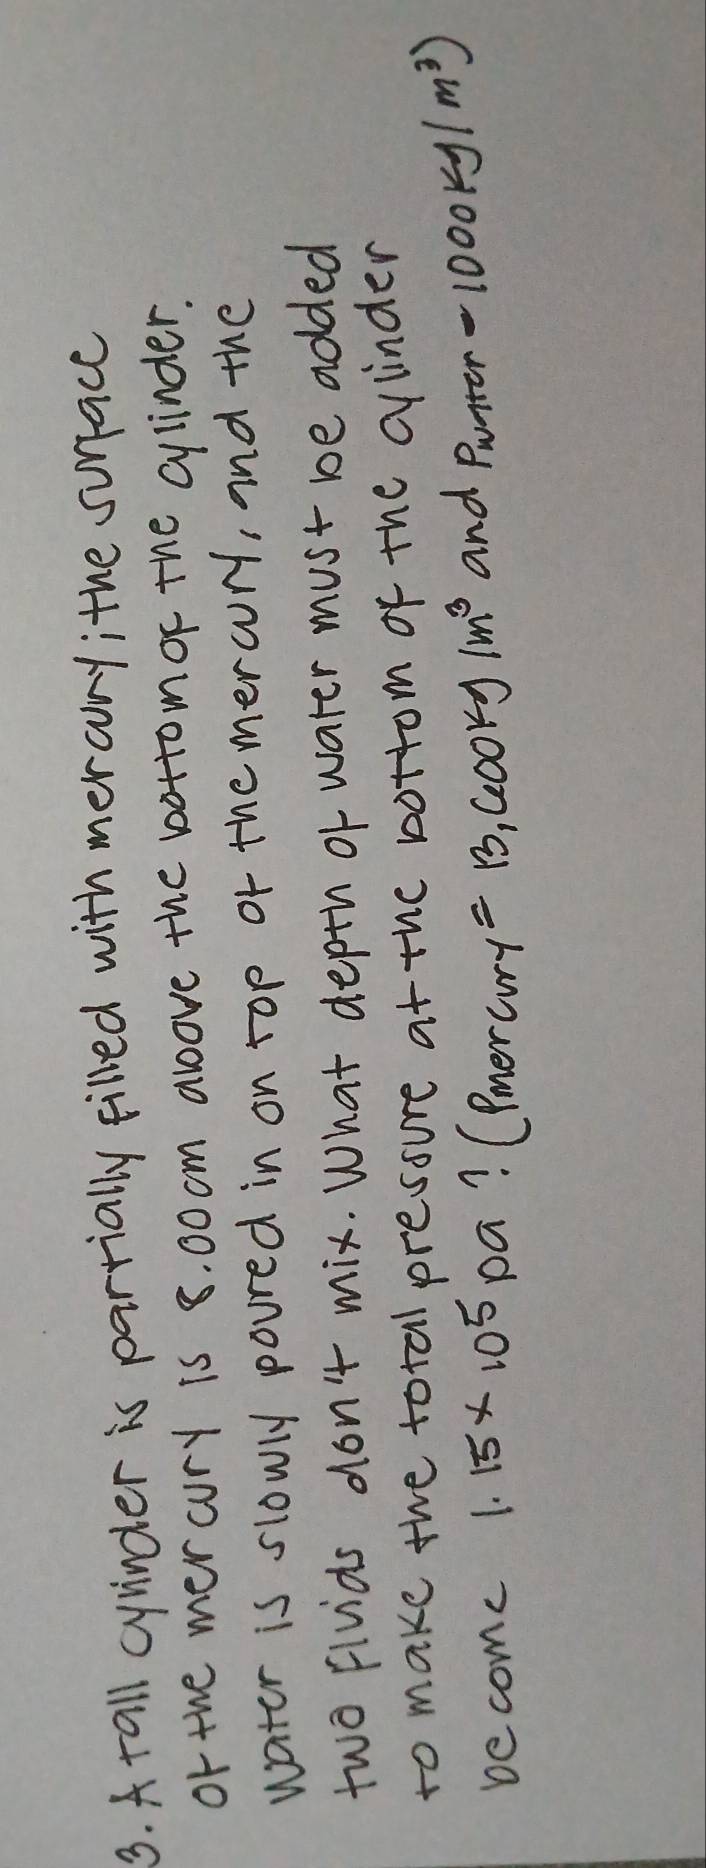 3. A tall cylinder is partially filled with mercury; the surface
of the mercury is 8.00cm above the bottom of the cylinder.
Water is slowly poured in on top of the mercury, and the
two fluids don't mix. What depth of water must be added
to make the total pressure at the bottom of the cylinder
become 1.15 x 10⁵ pa? (ρmercury = 13,600kg/m³ and ρwater - 1000kg/m³)